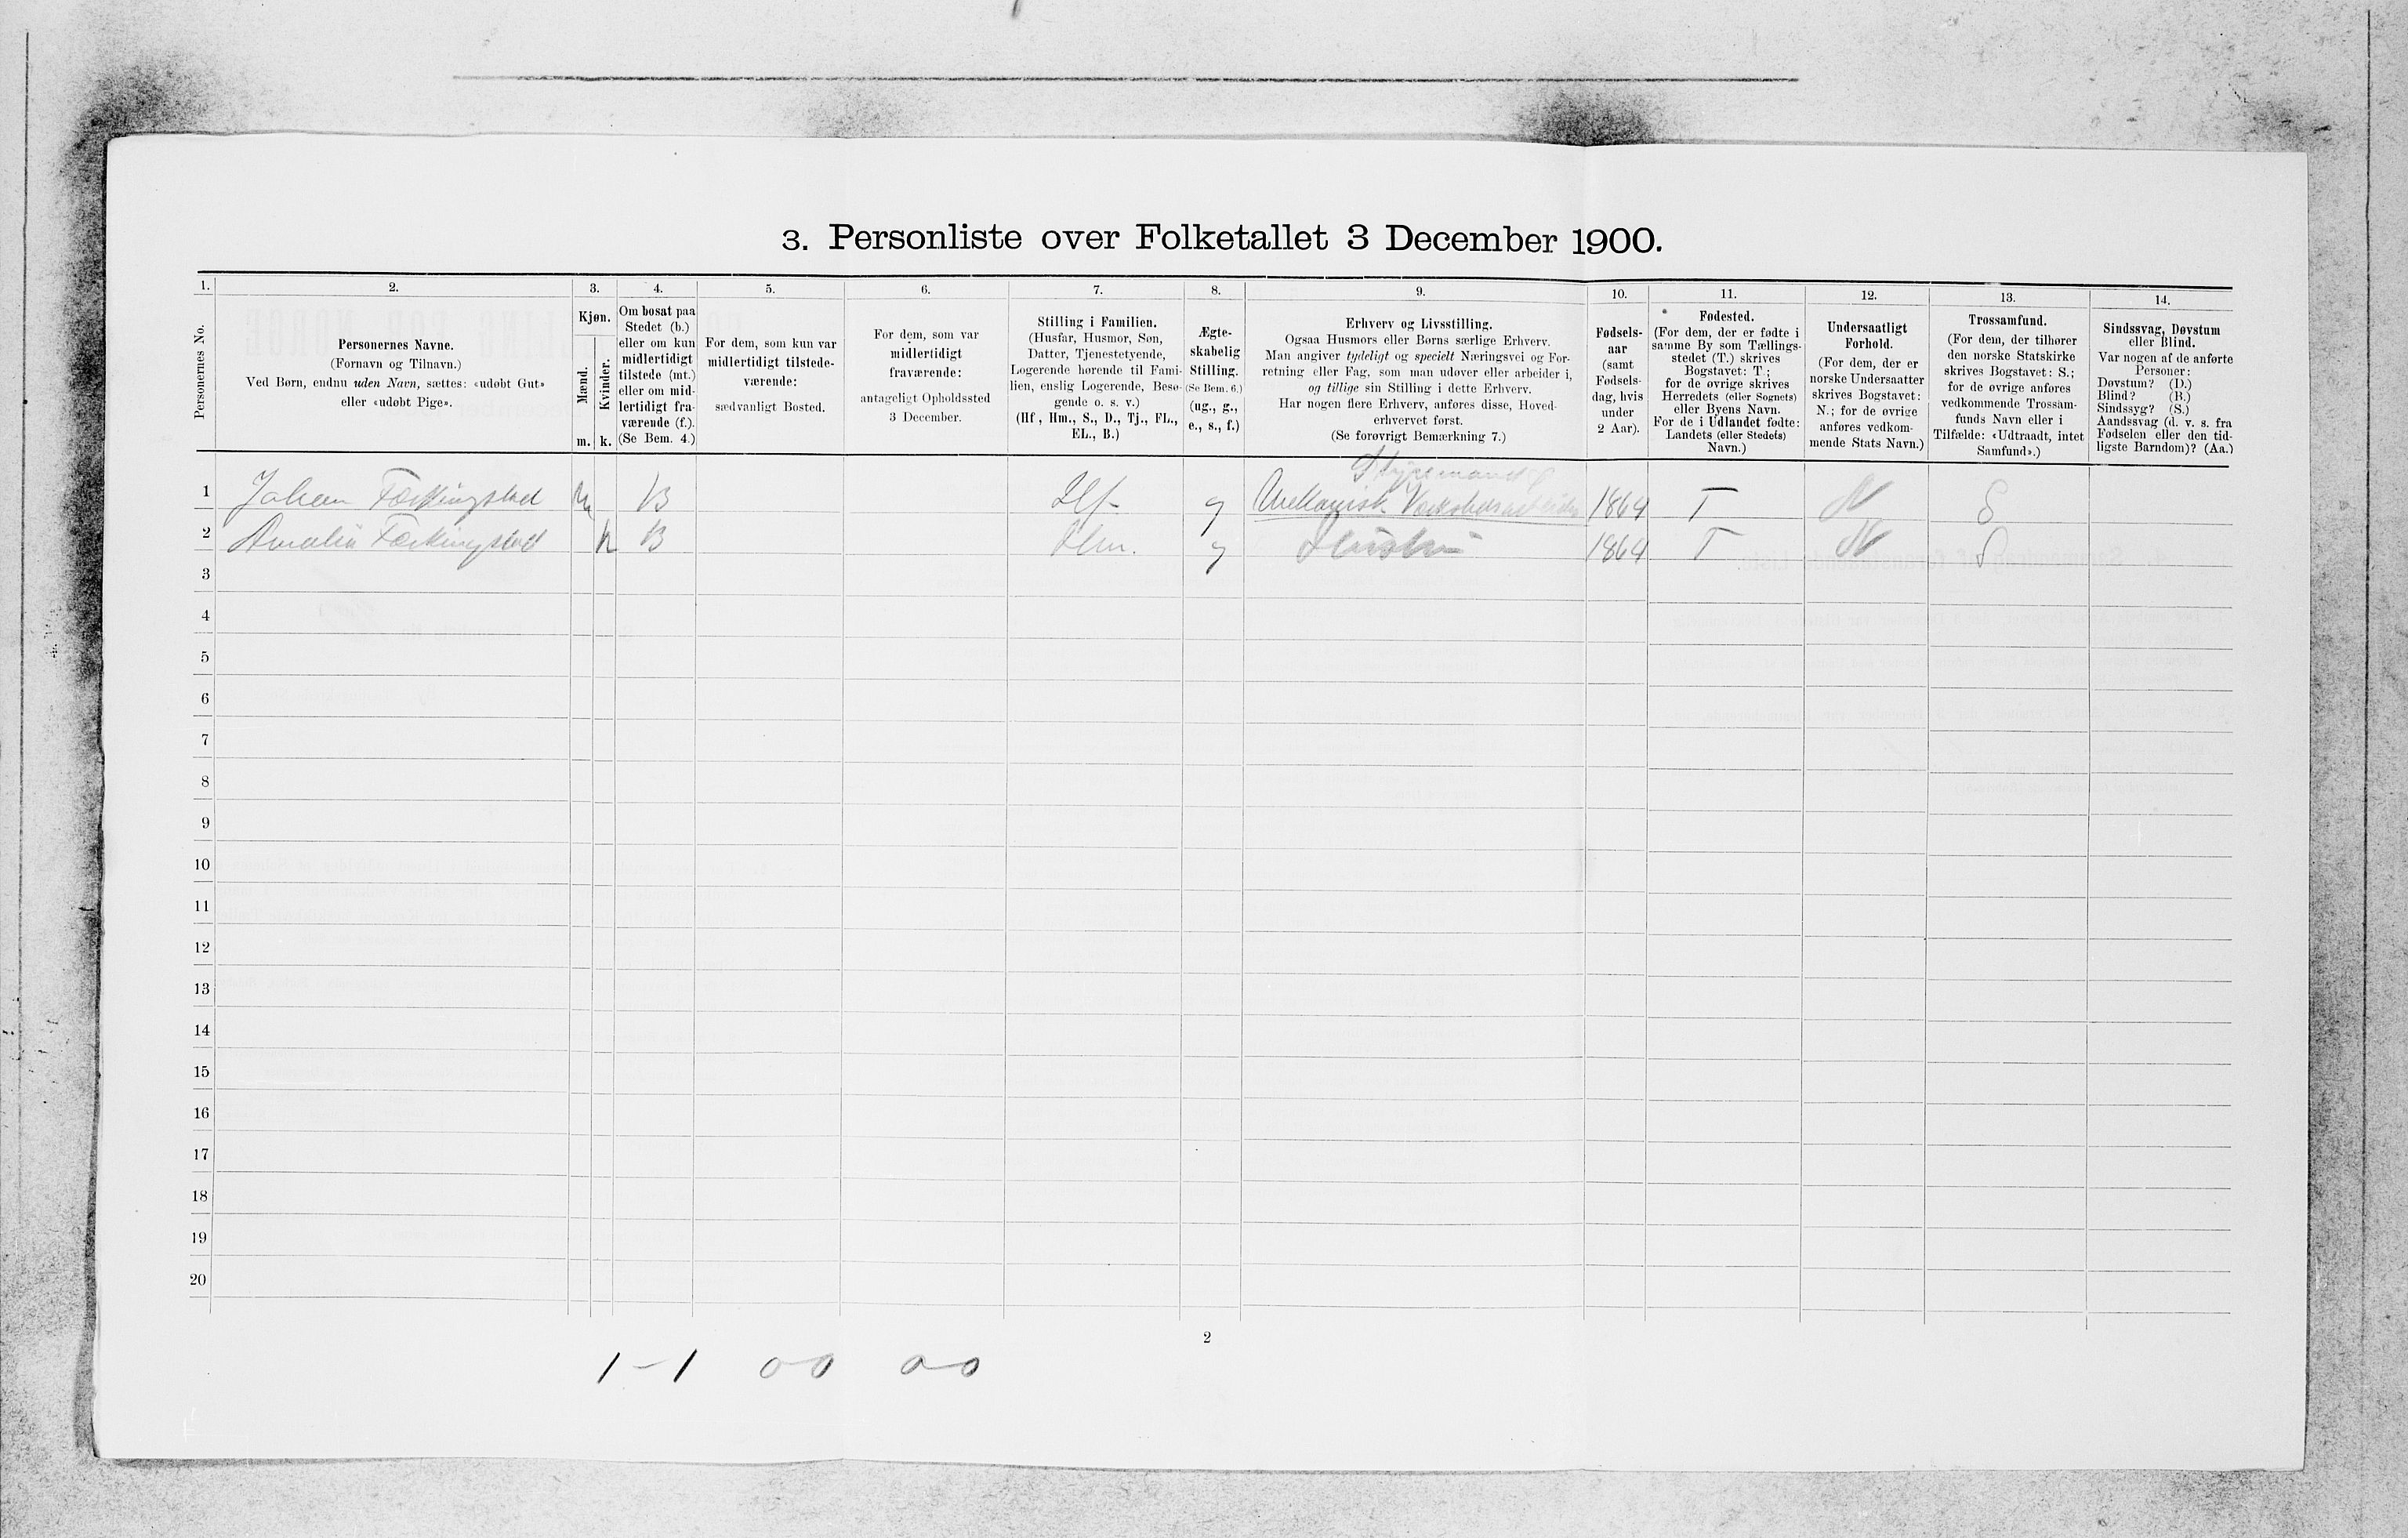 3. Personliste over Folketallet 3 December 1900.
1. 2. 3. 4. 5. 6. 7. 8. 9. 10. 11. 12. 13. 14.
Personernes No.
Personernes Navne.
(Fornavn og Tilnavn.)
Ved Børn, endnu uden Navn, sættes: «udøbt Gut»
eller «udøbt Pige».
Kjøn.
Mænd.
Kvinder.
m. k.
Om bosat paa
Stedet (b.)
eller om kun
midlertidigt
tilstede (mt.)
eller om mid-
lertidigt fra-
værende (f.).
(Se Bem. 4.)
For dem, som kun var
midlertidigt tilstede-
værende:
sædvanligt Bosted.
For dem, som var
midlertidigt
fraværende:
antageligt Opholdssted
3 December.
Stilling i Familien.
(Husfar, Husmor, Søn,
Datter, Tjenestetyende,
Logerende hørende til Fami-
lien, enslig Logerende, Besø-
gende o. s. v.)
(Hf, Hm., S., D., Tj., FL.,
EL., B.)
Ægte-
skabelig
Stilling.
(Se Bem. 6.)
(ug., g.,
e., s., f.)
Erhverv og Livsstilling.
Ogsaa Husmors eller Børns særlige Erhverv.
Man angiver tydeligt og specielt Næringsvei og For-
retning eller Fag, som man udøver eller arbeider i,
og tillige sin Stilling i dette Erhverv.
Har nogen flere Erhverv, anføres disse, Hoved-
erhvervet først.
(Se forøvrigt Bemærkning 7.)
Fødsels-
aar
(samt
Fødsels-
dag, hvis
under
2 Aar).
Fødested.
(For dem, der er fødte i
samme By som Tællings-
stedet (T.) skrives
Bogstavet: T;
for de øvrige skrives
Herredets (eller Sognets)
eller Byens Navn.
For de i Udlandet fødte:
Landets (eller Stedets)
Navn.)
Undersaatligt
Forhold.
(For dem, der er
norske Undersaatter
skrives Bogstavet:
N.; for de øvrige
anføres vedkom-
mende Stats Navn.)
Trossamfund.
(For dem, der tilhører
den norske Statskirke
skrives Bogstavet: S.;
for de øvrige anføres
vedkommende Trossam-
funds Navn eller i
Tilfælde: «Udtraadt, intet
Samfund».)
Sindssvag, Døvstum
eller Blind.
Var nogen af de anførte
Personer:
Døvstum? (D.)
Blind? (B.)
Sindssyg? (S.)
Aandssvag (d. v. s. fra
Fødselen eller den tid-
ligste Barndom)? (Aa.)
1 Johan Færkingstad m B Hf g Mekanisk Værkstedsarbeider 1864 T N S
2 Amalia Færkingstad k B Hm. g Hustru 1864 T N S
3
4
5
6
7
8
9
10
11
12
13
14
15
16
17
18
19
20
2
1-1 00 00